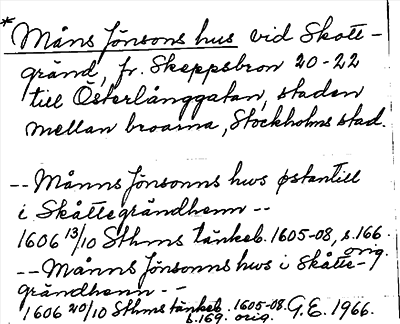 * Måns Jönsons hus vid Skott-
gränd, fr. Skeppsbron 20-22
till Österlånggatan, staden
mellan broarna, Stockholms stad.
-- Månns Jönsonns hws østantill
i Skåttegrändhenn --
1606 13/10 Sthms tänkeb. 1605-08, s. 166. orig.
-- Månns Jönsonns hws i Skåtte-
grändhenn --
1606 20/10 Sthms tänkeb. 1605-08. s. 169. orig. G.E. 1966.